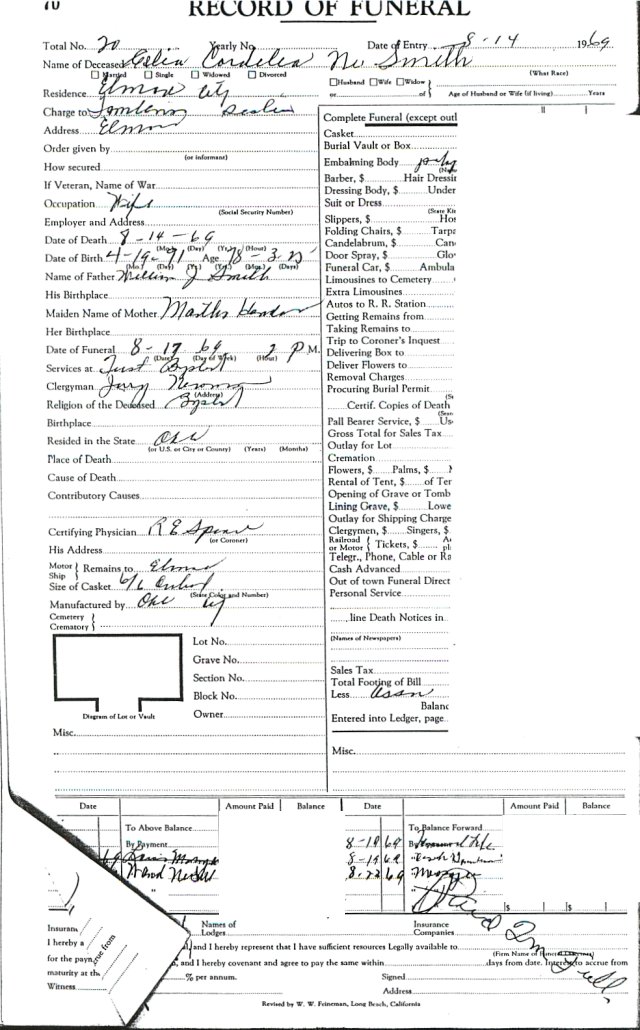 70
RECORD OF FUNERAL
Total No. 70 Yearly No. Date of Entry 8-14 1969
Name of Deceased Celia Cordelia Ne Smith
Married Single Widowed Divorced
Husband Wife Widow
(What Race)
or of Age of Husband or Wife (if living) Years
Residence Elmore City
Charge to
Address Elmore
Order given by
(or informant)
How secured
If Veteran, Name of War
Occupation Wife
(Social Security Number)
Employer and Address
Date of Death 8-14-69
(Mo.) (Day) (Yr.) (Hour)
Date of Birth 4-19-91 Age 78-3-25
(Mo.) (Day) (Yr.) (Yrs.) (Mos.) (Days)
Name of Father William J Smith
His Birthplace
Maiden Name of Mother Martha
Her Birthplace
Date of Funeral 8-17 69 2 P.M.
(Date) (Day of Week) (Hour)
Services at First Baptist
Clergyman Jerry
(Address)
Religion of the Deceased Baptist
Birthplace
Resided in the State
(or U.S. or City or County) (Years) (Months)
Place of Death
Cause of Death
Contributory Causes
Certifying Physician R E
(or Coroner)
His Address
Motor Ship Remains to Elmore
Size of Casket 6/6
(State Color and Number)
Manufactured by Okc
Cemetery
Crematory
Lot No.
Grave No.
Section No.
Block No.
Owner
Diagram of Lot or Vault
Misc.
Complete Funeral (except outl
Casket
Burial Vault or Box
Embalming Body
Barber, $ Hair Dressi
Dressing Body, $ Under
Suit or Dress
(State Kin
Slippers, $ Hos
Folding Chairs, $ Tarpa
Candelabrum, $ Can
Door Spray, $ Glo
Funeral Car, $ Ambula
Limousines to Cemetery
Extra Limousines
Autos to R. R. Station
Getting Remains from
Taking Remains to
Trip to Coroner's Inquest
Delivering Box to
Deliver Flowers to
Removal Charges
Procuring Burial Permit
Certif. Copies of Death
Pall Bearer Service, $ Us
Gross Total for Sales Tax
Outlay for Lot
Cremation
Flowers, $ Palms, $
Rental of Tent, $ of Ter
Opening of Grave or Tomb
Lining Grave, $ Lowe
Outlay for Shipping Charge
Clergymen, $ Singers, $
Railroad or Motor Tickets, $
Telegr., Phone, Cable or Ra
Cash Advanced
Out of town Funeral Direct
Personal Service
line Death Notices in
(Names of Newspapers)
Sales Tax
Total Footing of Bill
Less Assn
Balanc
Entered into Ledger, page
Misc.
Date Amount Paid Balance Date Amount Paid Balance
To Above Balance To Balance Forward
By Payment By
8-19 69
8-19 69
8-22 69
Paid
In Full
Insuran
I hereby a
for the payn
maturity at th
Witness
rue from
Names of Lodges
Insurance Companies
, and I hereby represent that I have sufficient resources Legally available to
(Firm Name of Funeral Directors)
, and I hereby covenant and agree to pay the same within days from date. Interest to accrue from
% per annum. Signed
Address
Revised by W. W. Feineman, Long Beach, California